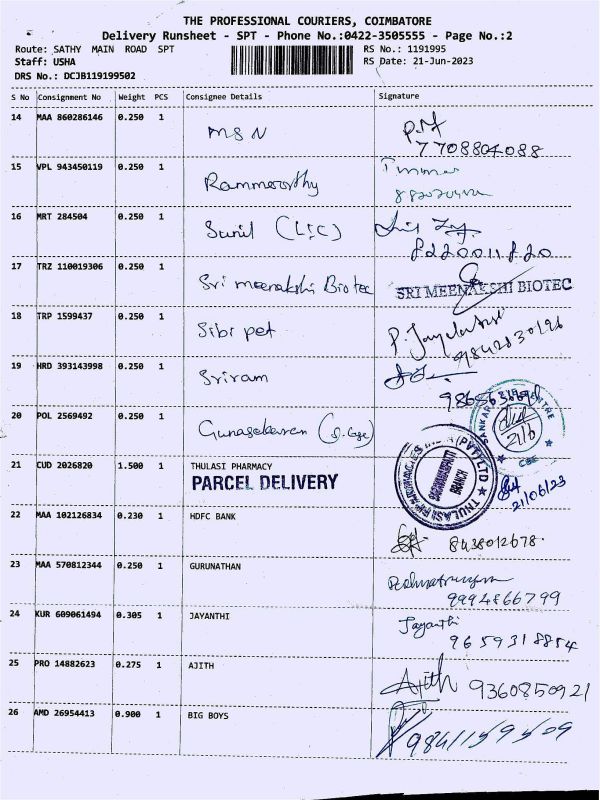 THE PROFESSIONAL COURIERS, COIMBATORE
Delivery Runsheet - SPT - Phone No.:0422-3505555 - Page No.:2
Route: SATHY MAIN ROAD SPT RS No.: 1191995
Staff: USHA RS Date: 21-Jun-2023
DRS No.: DCJB119199502
S No Consignment No Weight PCS Consignee Details Signature
14 MAA 860286146 0.250 1 MSN
7708804088
15 VPL 943450119 0.250 1 Rammoorthy
16 MRT 284504 0.250 1 Sunil (LIC)
8220011820
17 TRZ 110019306 0.250 1 Sri meenakshi Biotec SRI MEENAKSHI BIOTEC
18 TRP 1599437 0.250 1 Sibi pet P.
9842830196
19 HRD 393143998 0.250 1 Sriram
20 POL 2569492 0.250 1 Gunasekaran
21/6
CBE
21 CUD 2026820 1.500 1 THULASI PHARMACY
PARCEL DELIVERY
BRANCH
21/06/23
22 MAA 102126834 0.230 1 HDFC BANK
8438012678
23 MAA 570812344 0.250 1 GURUNATHAN
9994866799
24 KUR 609061494 0.305 1 JAYANTHI Jayanthi
9659318854
25 PRO 14882623 0.275 1 AJITH Ajith 9360850921
26 AMD 26954413 0.900 1 BIG BOYS